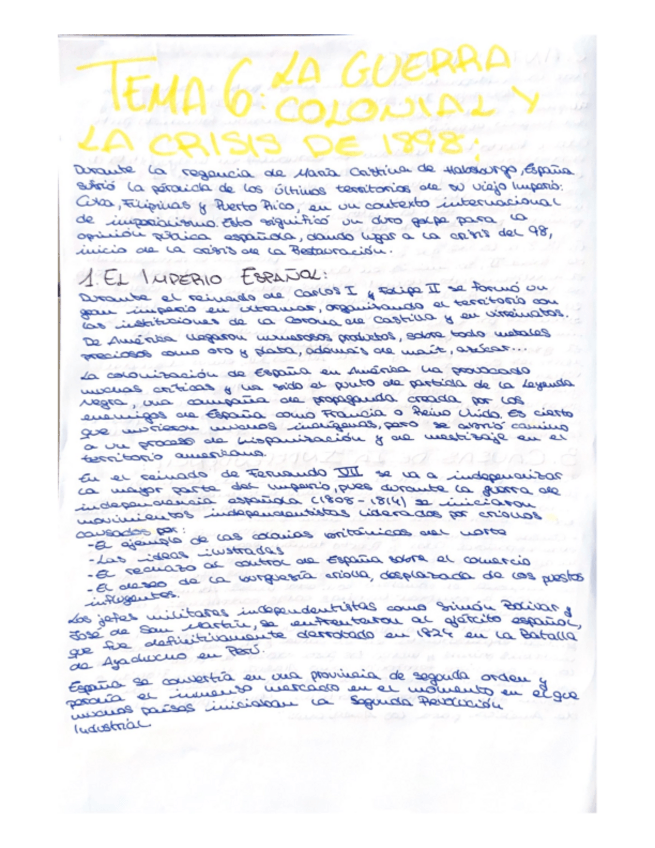 TEMA 6: LA GUERRA
COLONIAL Y
LA CRISIS DE 1898:
Durante la regencia de María Cristina de Habsburgo, España
sufrió la pérdida de los últimos territorios de su viejo Imperio:
Cuba, Filipinas y Puerto Rico, en un contexto internacional
de imperialismo. Esto significó un duro golpe para la
opinión pública española, dando lugar a la crisis del 98,
inicio de la crisis de la Restauración.
1. EL IMPERIO ESPAÑOL:
Durante el reinado de Carlos I y Felipe II se formó un
gran imperio en ultramar, organizando el territorio con
las instituciones de la Corona de Castilla y en virreinatos.
De América llegaron numerosos productos, sobre todo metales
preciosos como oro y plata, además de maíz, azúcar...
La colonización de España en América ha provocado
muchas críticas y ha sido el punto de partida de la Leyenda
Negra, una campaña de propaganda creada por los
enemigos de España como Francia o Reino Unido. Es cierto
que murieron muchos indígenas, pero se abrió camino
a un proceso de hispanización y de mestizaje en el
territorio americano.
En el reinado de Fernando VII se va a independizar
la mayor parte del imperio, pues durante la guerra de
independencia española (1808-1814) se iniciaron
movimientos independentistas liderados por criollos
causados por:
-El ejemplo de las colonias británicas del norte
-Las ideas ilustradas
-El rechazo al control de España sobre el comercio
-El deseo de la burguesía criolla, desplazada de los puestos
influyentes.
Los jefes militares independentistas como Simón Bolívar y
José de San Martín, se enfrentaron al ejército español,
que fue definitivamente derrotado en 1824 en la Batalla
de Ayacucho en Perú.
España se convertía en una provincia de segunda orden y
perdía el inmenso mercado en el momento en el que
muchos países iniciaban la Segunda Revolución
Industrial.